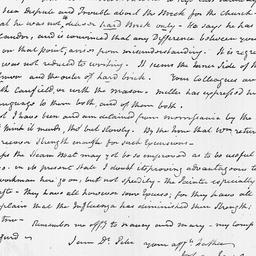 been Dispute and Trouble about the Brick for the church
that he was not to deliver hard Brick only - He says he has
candor, and is convinced that any Difference between you
on that point, arises from misunderstanding. It is regre
was not reduced to writing. It seems the inner side of th
and the outer of hard brick. Your Colleagues are
with Canfield, or with the mason. Miller has expressed hi
language to them both, and of them both.
I have been and am detained from morrisania by the
I think it mends, tho' but slowly. By the time that Wm retur
recover Strength enough for such Excursions -
the Steam Boat may yet be so improved as to be useful
in its present State I doubt its proving advantageous to
workmen here go on, but not speedily - the Painter especially
they have all however some Excuse; for they have all
complain that the Influenza has diminished their Strength
Remember me affly to Nancy and Mary - my comp
I am Dr Peter your afft. Father